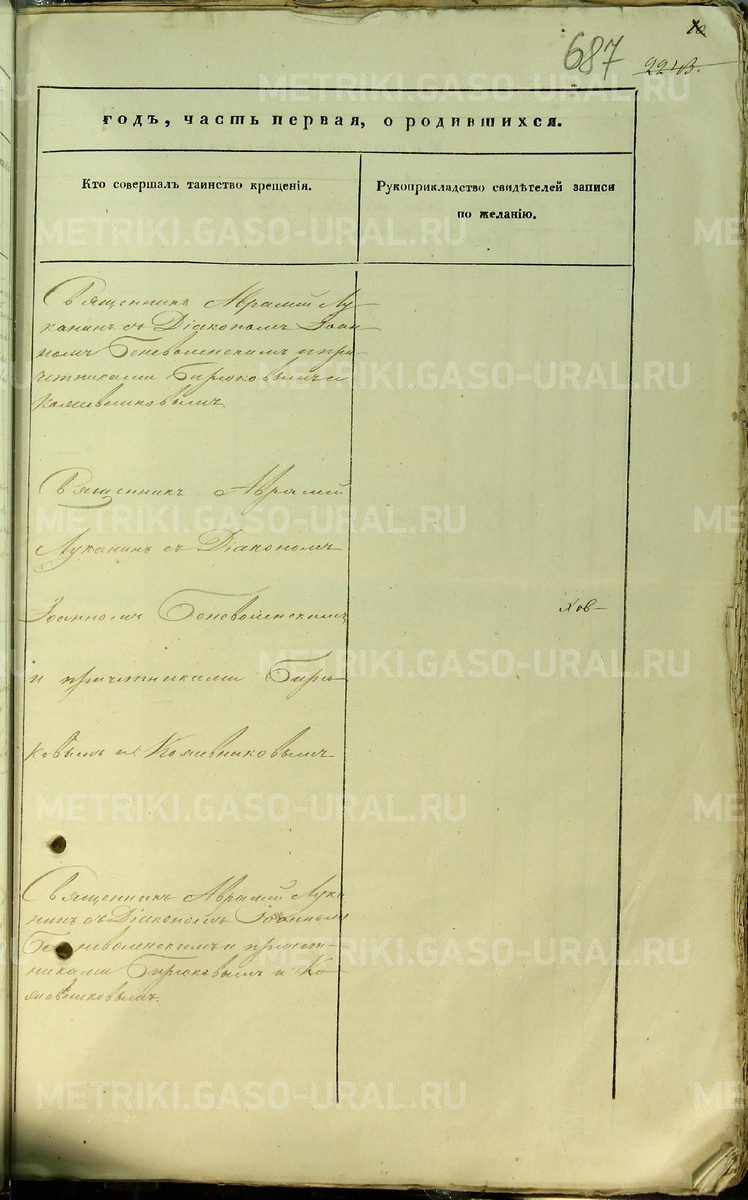 687
годъ, часть первая, о родившихся.
Кто совершалъ таинство крещенія.
Рукоприкладство свидѣтелей записи
по желанію.
Священникъ Аврамій Лу-
канинъ съ Діакономъ Іоан-
номъ Беневоленскимъ и при-
четниками Бирюковымъ и
Кожевниковымъ
Священникъ Аврамій
Луканинъ съ Діакономъ
Іоанномъ Беневоленскимъ
и причетниками Бирю
ковымъ и Кожевниковымъ
Священникъ Аврамій Лука
нинъ съ Діакономъ Іоанномъ
Беневоленскимъ и причет-
никами Бирюковымъ и Ко-
жевниковымъ.
METRIKI.GASO-URAL.RU